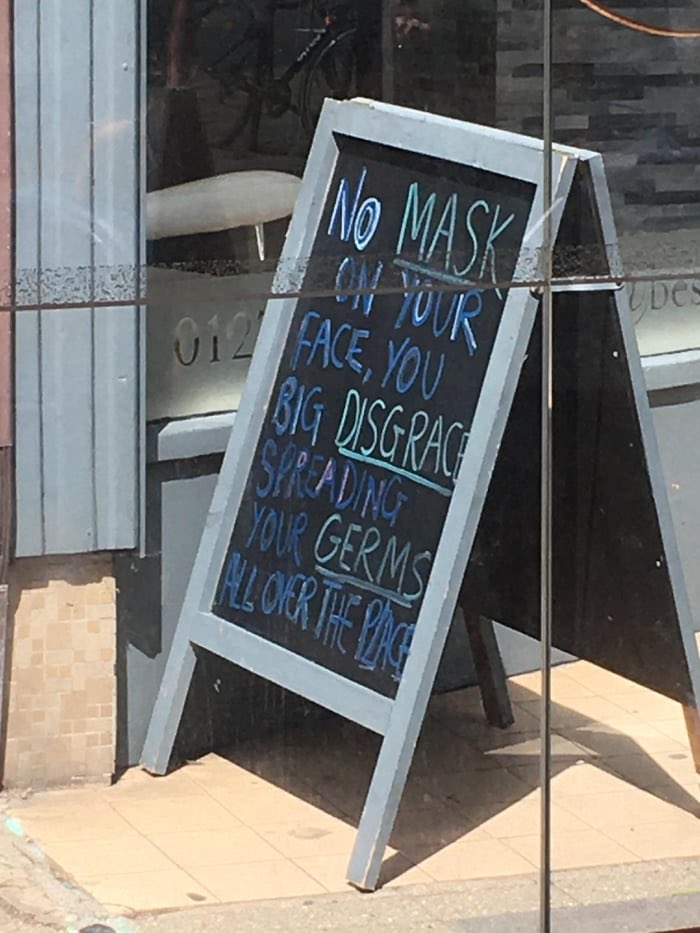 NO MASK
ON YOUR
FACE, YOU
BIG DISGRACE
SPREADING
YOUR GERMS
ALL OVER THE PLACE
012